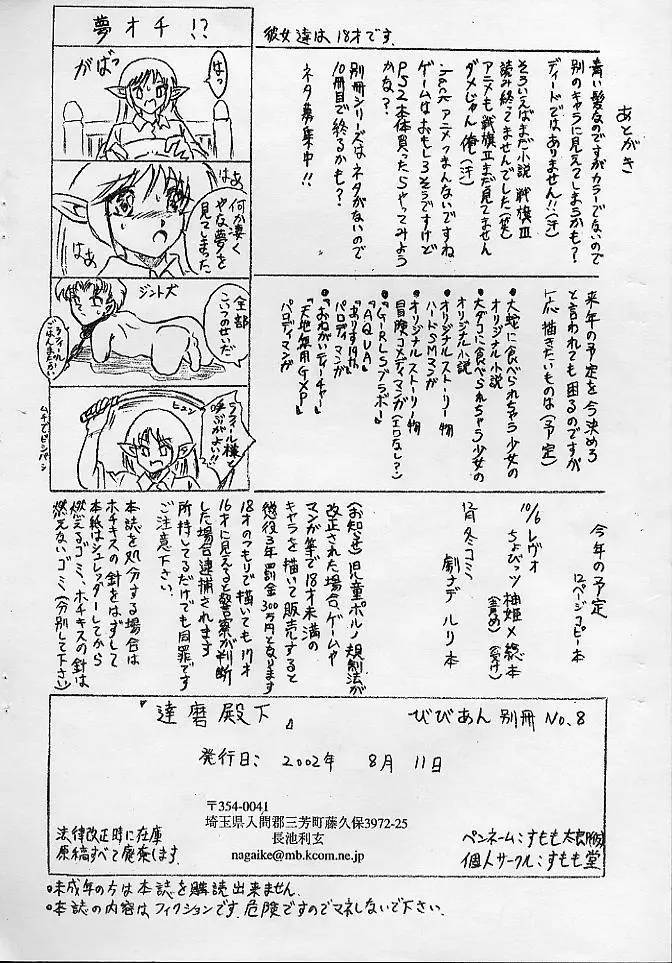 あとがき
青い髪なのですがカラーでないので
別のキャラに見えてしまうかも?
ディードではありません!!(汗)
そういえばまだ小説 戦旗Ⅲ
読み終ってませんでした(爆)
アニメも戦旗Ⅱまだ見てません
ダメじゃん 俺(汗)
.hack アニメつまんないですね
ゲームはおもしろそうですけど
PS2本体買ったらやってみよう
かな?
別冊シリーズはネタがないので
10冊目で終るかも?
ネタ募集中!!
彼女達は18才です.
夢オチ!?
はっ
がばっ
はぁ
何か凄く
やな夢を
見てしまった
はぁ
ジント犬
全部
こいつのせいだ
ごはんまだかい
ラフィール様と
呼ぶがよい!!
ヒュン
ムチでビシバシ
来年の予定を今決めろ
と言われても困るのですが
一応描きたいものは(予定)
・大蛇に食べられちゃう少女の
オリジナル小説
・大ダコに食べられちゃう少女の
オリジナル小説
・オリジナルストーリー物
ハードSMマンガ
・オリジナルストーリー物
冒険コメディマンガ(エロなし?)
・『GiRLSブラボー』
『AQUA』
『ありす19th』
パロディマンガ
・『おねがいティーチャー』
『天地無用GXP』
パロディマンガ
今年の予定
12ページコピー本
10/6 レヴォ
ちょびっツ 柚姫×総本
(責め) (受け)
12月冬コミ
劇ナデルリ本
(お知らせ) 児童ポルノ規制法が
改正された場合、ゲームや
マンガ等で18才未満の
キャラを描いて販売すると
懲役3年罰金300万円となります
18才のつもりで描いても17才
16才に見えると警察が判断
した場合逮捕されます
所持してるだけでも同罪です
ご注意下さい.
本誌を処分する場合は
ホチキスの針をはずして
本紙はシュレッダーしてから
燃えるゴミ、ホチキスの針は
燃えないゴミ(分別して下さい)
『達磨殿下』
びびあん 別冊 No.8
発行日: 2002年 8月 11日
〒354-0041
埼玉県入間郡三芳町藤久保3972-25
長池利玄
nagaike@mb.kcom.ne.jp
法律改正時に在庫
原稿すべて廃棄します.
ペンネーム:すもも太郎(仮)
個人サークル:すもも堂
・未成年の方は本誌を購読出来ません.
・本誌の内容はフィクションです.危険ですのでマネしないで下さい.